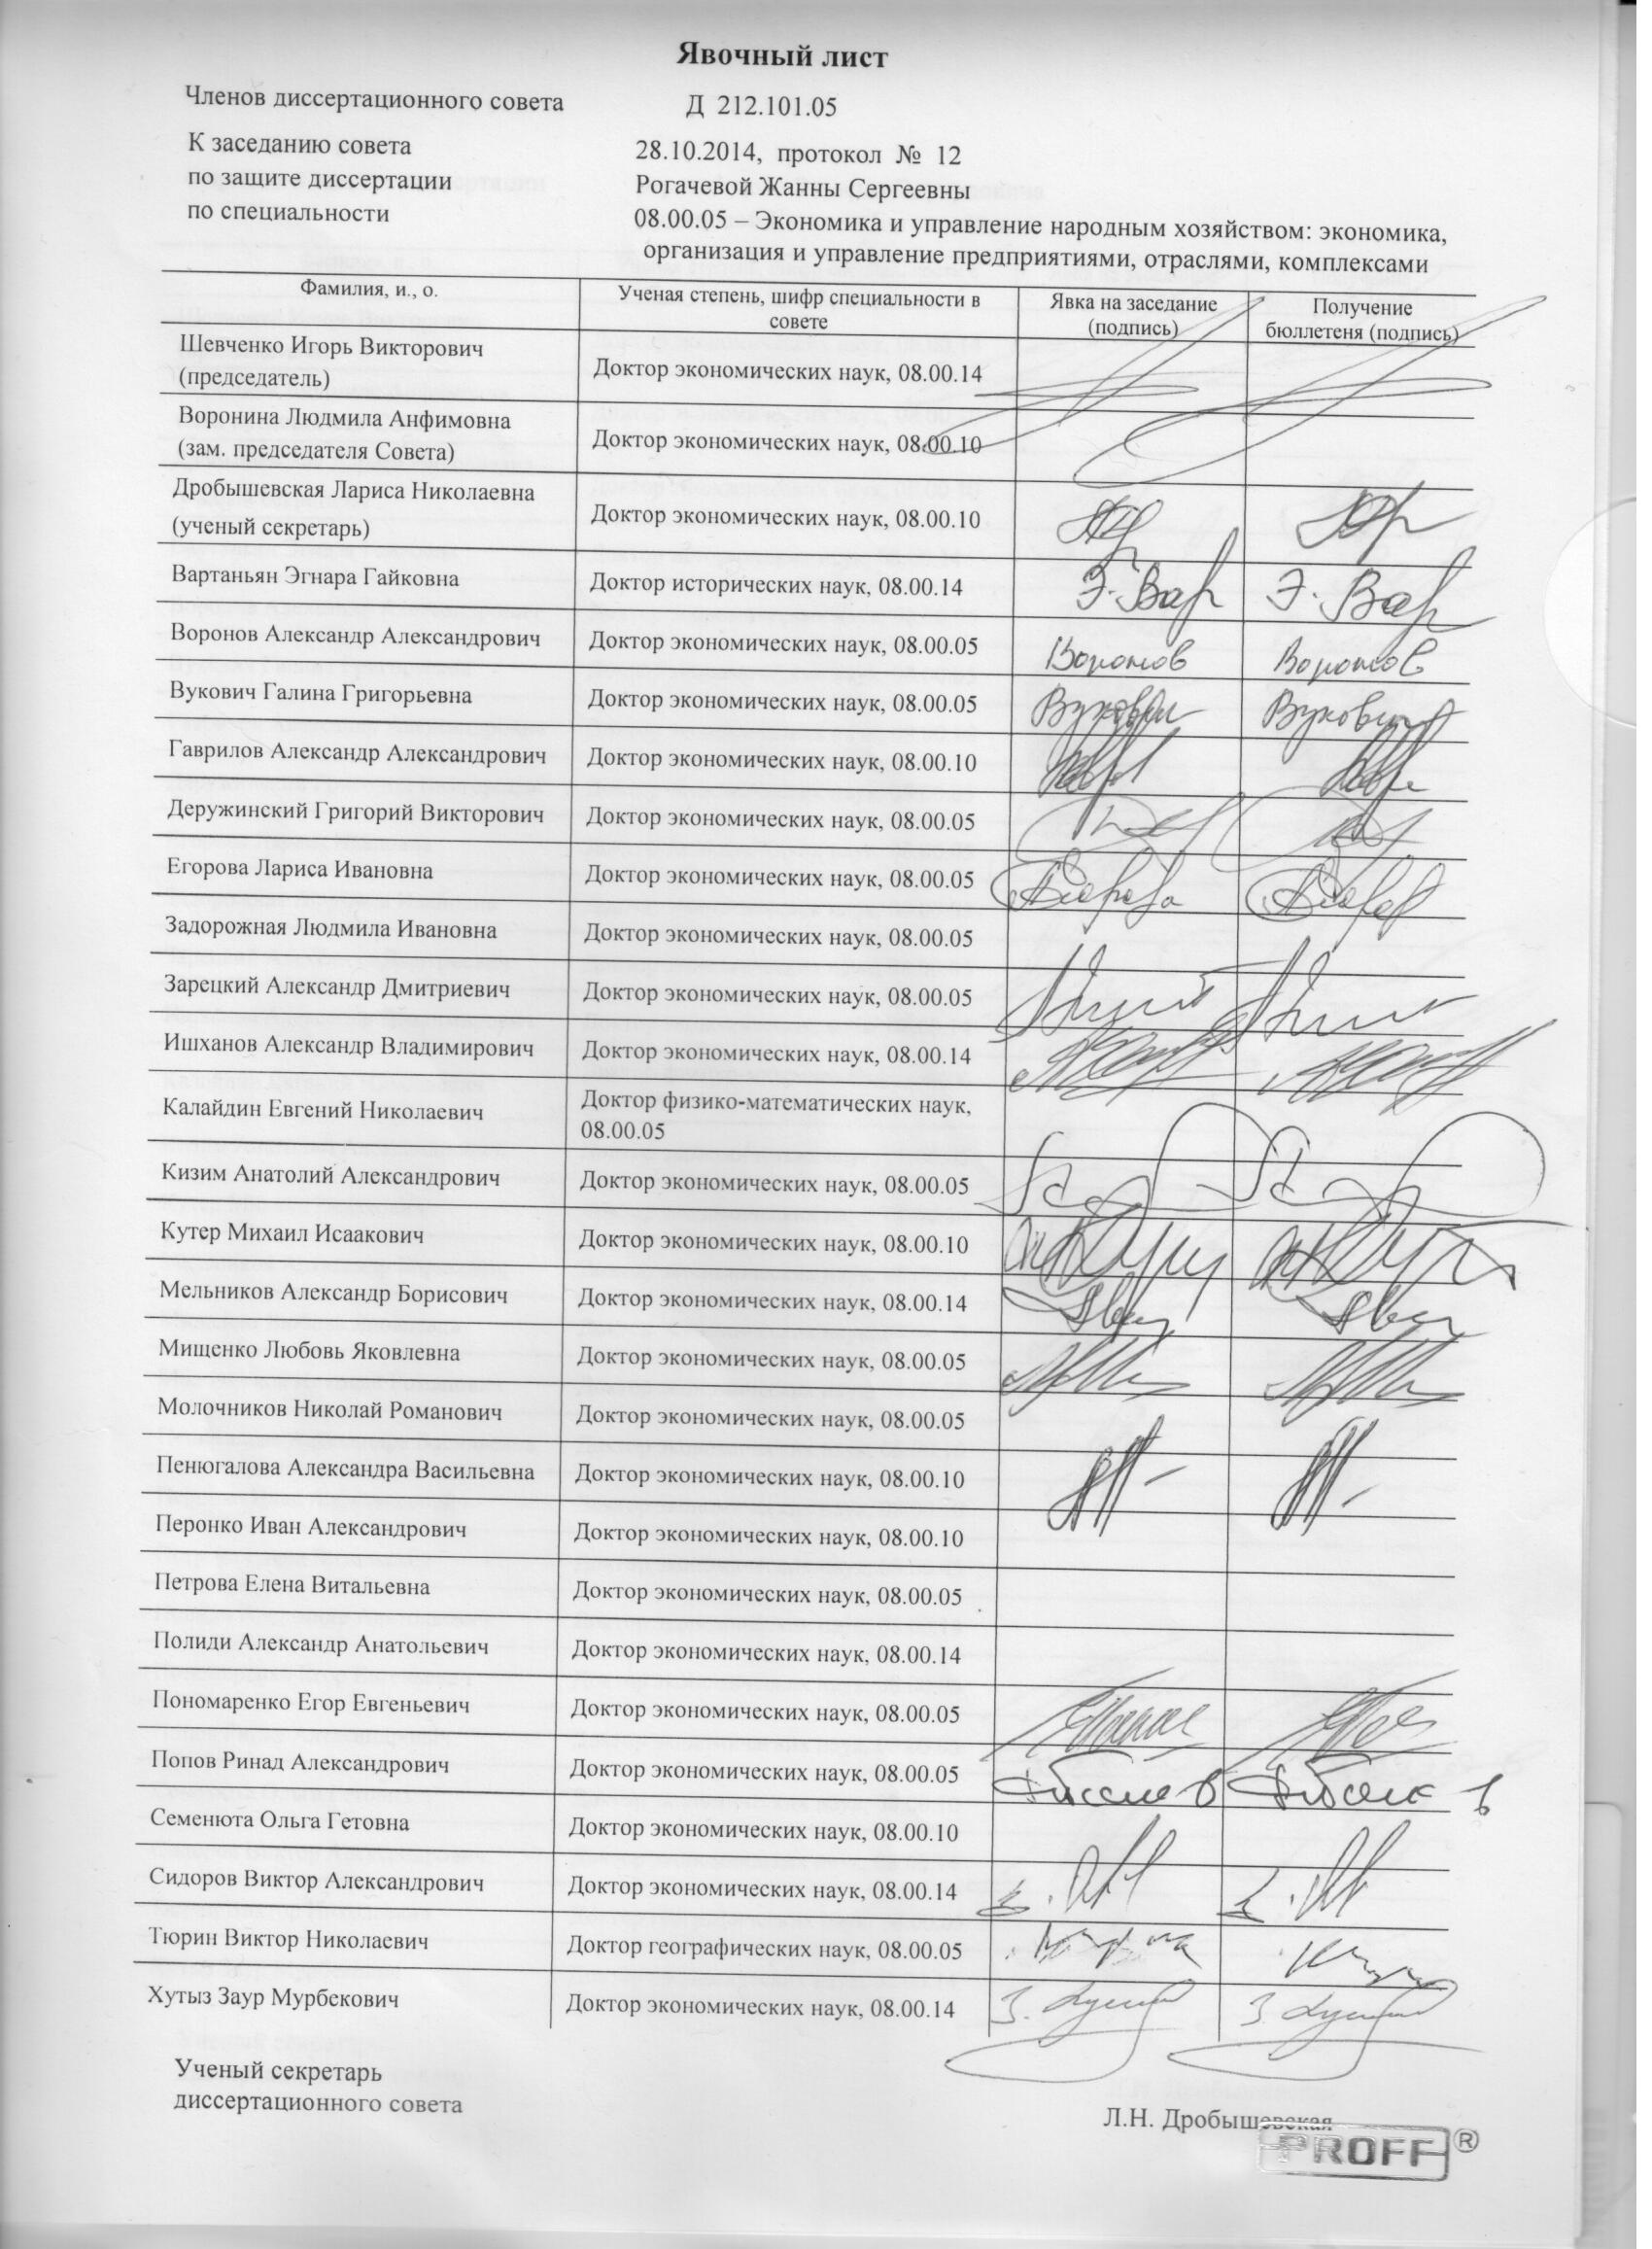 Явочный лист
Членов диссертационного совета Д 212.101.05
К заседанию совета 28.10.2014, протокол № 12
по защите диссертации Рогачевой Жанны Сергеевны
по специальности 08.00.05 – Экономика и управление народным хозяйством: экономика,
организация и управление предприятиями, отраслями, комплексами
Фамилия, и., о. Ученая степень, шифр специальности в Явка на заседание Получение
совете (подпись) бюллетеня (подпись)
Шевченко Игорь Викторович
(председатель) Доктор экономических наук, 08.00.14
Воронина Людмила Анфимовна
(зам. председателя Совета) Доктор экономических наук, 08.00.10
Дробышевская Лариса Николаевна
(ученый секретарь) Доктор экономических наук, 08.00.10
Вартаньян Эгнара Гайковна Доктор исторических наук, 08.00.14 Э. Вар Э. Вар
Воронов Александр Александрович Доктор экономических наук, 08.00.05 Воронов Воронов
Вукович Галина Григорьевна Доктор экономических наук, 08.00.05 Вукович Вукович
Гаврилов Александр Александрович Доктор экономических наук, 08.00.10
Деружинский Григорий Викторович Доктор экономических наук, 08.00.05
Егорова Лариса Ивановна Доктор экономических наук, 08.00.05
Задорожная Людмила Ивановна Доктор экономических наук, 08.00.05
Зарецкий Александр Дмитриевич Доктор экономических наук, 08.00.05
Ишханов Александр Владимирович Доктор экономических наук, 08.00.14
Калайдин Евгений Николаевич Доктор физико-математических наук,
08.00.05
Кизим Анатолий Александрович Доктор экономических наук, 08.00.05
Кутер Михаил Исаакович Доктор экономических наук, 08.00.10
Мельников Александр Борисович Доктор экономических наук, 08.00.14
Мищенко Любовь Яковлевна Доктор экономических наук, 08.00.05
Молочников Николай Романович Доктор экономических наук, 08.00.05
Пенюгалова Александра Васильевна Доктор экономических наук, 08.00.10
Перонко Иван Александрович Доктор экономических наук, 08.00.10
Петрова Елена Витальевна Доктор экономических наук, 08.00.05
Полиди Александр Анатольевич Доктор экономических наук, 08.00.14
Пономаренко Егор Евгеньевич Доктор экономических наук, 08.00.05
Попов Ринад Александрович Доктор экономических наук, 08.00.05
Семенюта Ольга Гетовна Доктор экономических наук, 08.00.10
Сидоров Виктор Александрович Доктор экономических наук, 08.00.14
Тюрин Виктор Николаевич Доктор географических наук, 08.00.05
Хутыз Заур Мурбекович Доктор экономических наук, 08.00.14
Ученый секретарь
диссертационного совета
Л.Н. Дробышевская
PROFF®